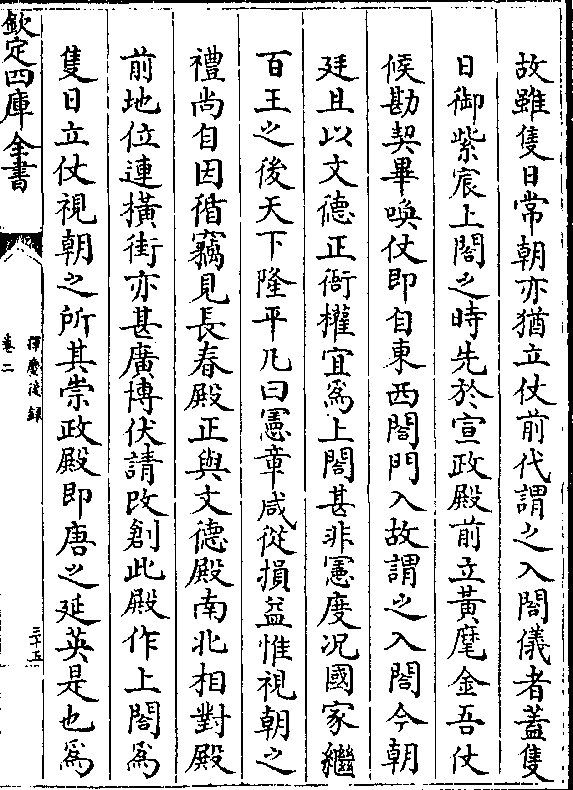 故雖隻日常朝亦猶立仗前代謂之入閤儀者蓋隻
日御紫宸上閤之時先於宣政殿前立黃麾金吾仗
候勘契畢喚仗即自東西閤門入故謂之入閤今朝
廷且以文德正衙權宜為上閤甚非憲度况國家繼
百王之後天下隆平凡曰憲章咸從損益惟視朝之
禮尚自因循竊見長春殿正與文德殿南北相對殿
前地位連橫街亦甚廣博伏請改創此殿作上閤為
隻日立仗視朝之所其崇政殿即唐之延英是也為
欽定四庫全書
揮麈後録
卷二
三十五